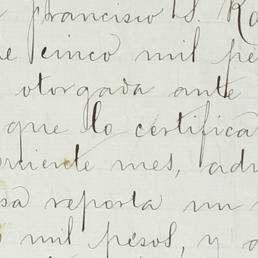 Francisco S. Ra
e cinco mil pe
otorgada ante
que lo certifica
orriente mes, adu
sa reporta un
mil pesos, y a